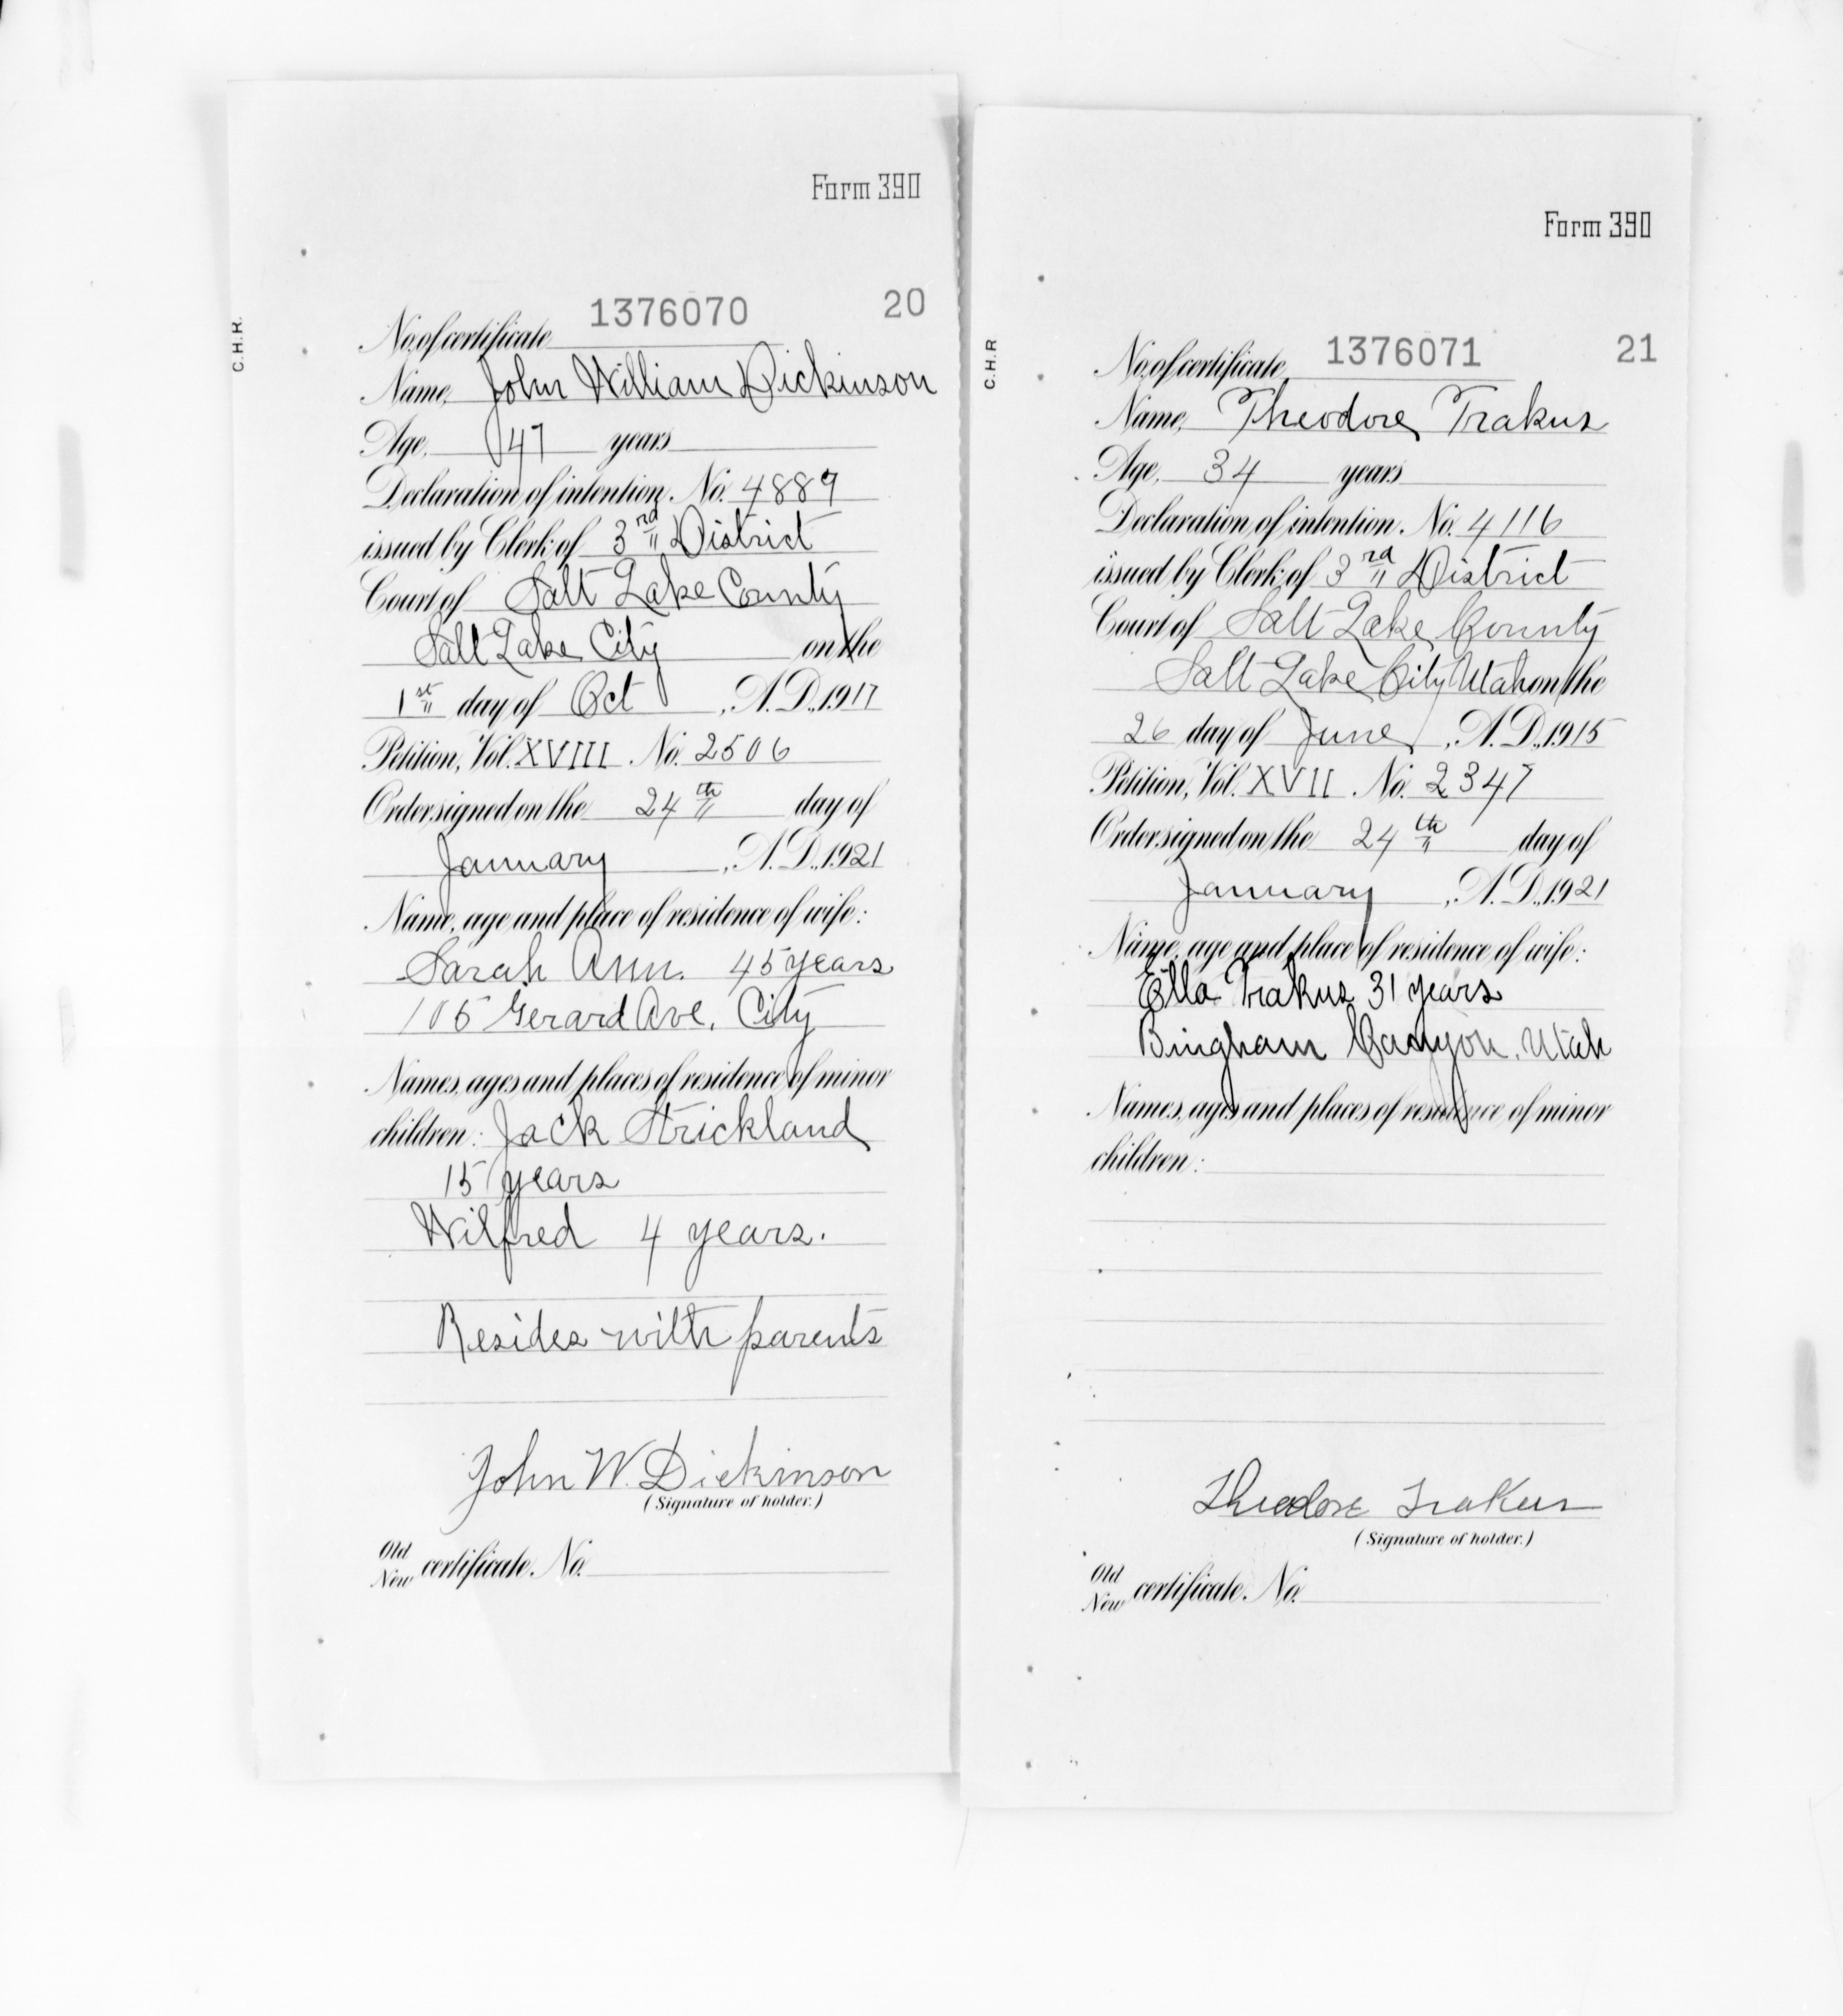 Form 390
1376070 20
C.H.R.
No. of certificate
Name, John William Dickinson
Age, 47 years
Declaration of intention, No. 4889
issued by Clerk of 3rd District
Court of Salt Lake County
Salt Lake City on the
1st day of Oct, A. D., 1917
Petition, Vol. XVIII, No. 2506
Order signed on the 24th day of
January, A. D., 1921
Name, age and place of residence of wife:
Sarah Ann. 45 years
106 Gerard Ave, City
Names, ages and places of residence of minor
children: Jack Strickland
15 years
Wilfred 4 years.
Resides with parents
John W. Dickinson
(Signature of holder.)
Old
New certificate, No.
Form 390
1376071 21
C.H.R
No. of certificate
Name, Theodore Trakus
Age, 34 years
Declaration of intention, No. 4116
issued by Clerk of 3rd District
Court of Salt Lake County
Salt Lake City Utah on the
26 day of June, A. D., 1915
Petition, Vol. XVII, No. 2347
Order signed on the 24th day of
January, A. D., 1921
Name, age and place of residence of wife:
Ella Trakus 31 years
Bingham Canyon, Utah
Names, ages and places of residence of minor
children:
Theodore Trakus
(Signature of holder.)
Old
New certificate, No.